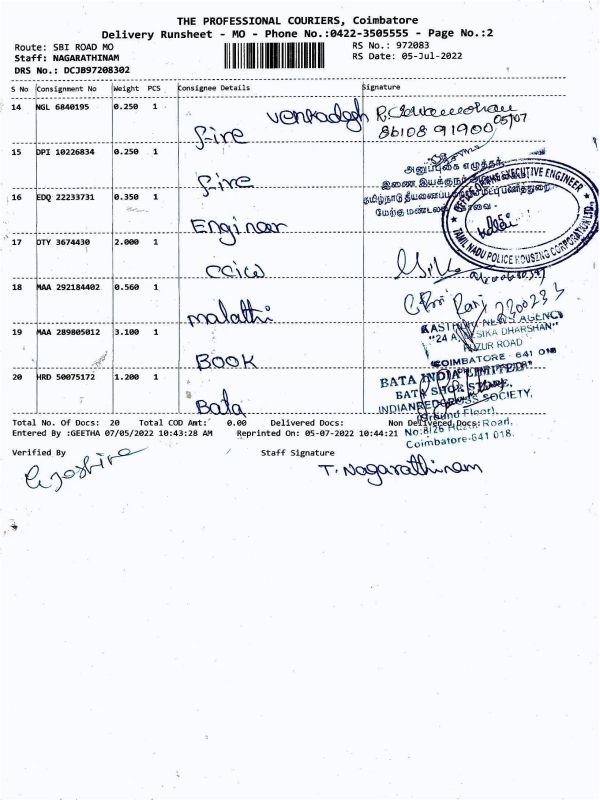 THE PROFESSIONAL COURIERS, Coimbatore
Delivery Runsheet - MO - Phone No.:0422-3505555 - Page No.:2
Route: SBI ROAD MO RS No.: 972083
Staff: NAGARATHINAM RS Date: 05-Jul-2022
DRS No.: DCJB97208302
S No Consignment No Weight PCS Consignee Details Signature
14 NGL 6840195 0.250 1
05/07
86108 91900
fire
15 DPI 10226834 0.250 1
fire
அலுவலக எழுத்தர்
16 EDQ 22233731 0.350 1
மேற்கு மண்டலம்
EXECUTIVE ENGINEER
TAMIL NADU POLICE HOUSING CORPORATION LTD.,
17 OTY 3674430 2.000 1
18 MAA 292184402 0.560 1
malathi
19 MAA 289805012 3.100 1
NEWS AGENCY
"24 A, DESIKA DHARSHAN"
HUZUR ROAD
COIMBATORE - 641 018
BOOK
20 HRD 50075172 1.200 1
BATA INDIA LIMITED
BATA SHOE STORE,
INDIANREDCROSS SOCIETY,
(Ground Floor),
Bata
Total No. Of Docs: 20 Total COD Amt: 0.00 Delivered Docs: Non Delivered Docs:
No:8/26 Huzur Road,
Entered By :GEETHA 07/05/2022 10:43:28 AM Reprinted On: 05-07-2022 10:44:21
Coimbatore-641 018.
Verified By Staff Signature
T. Nagarathinam